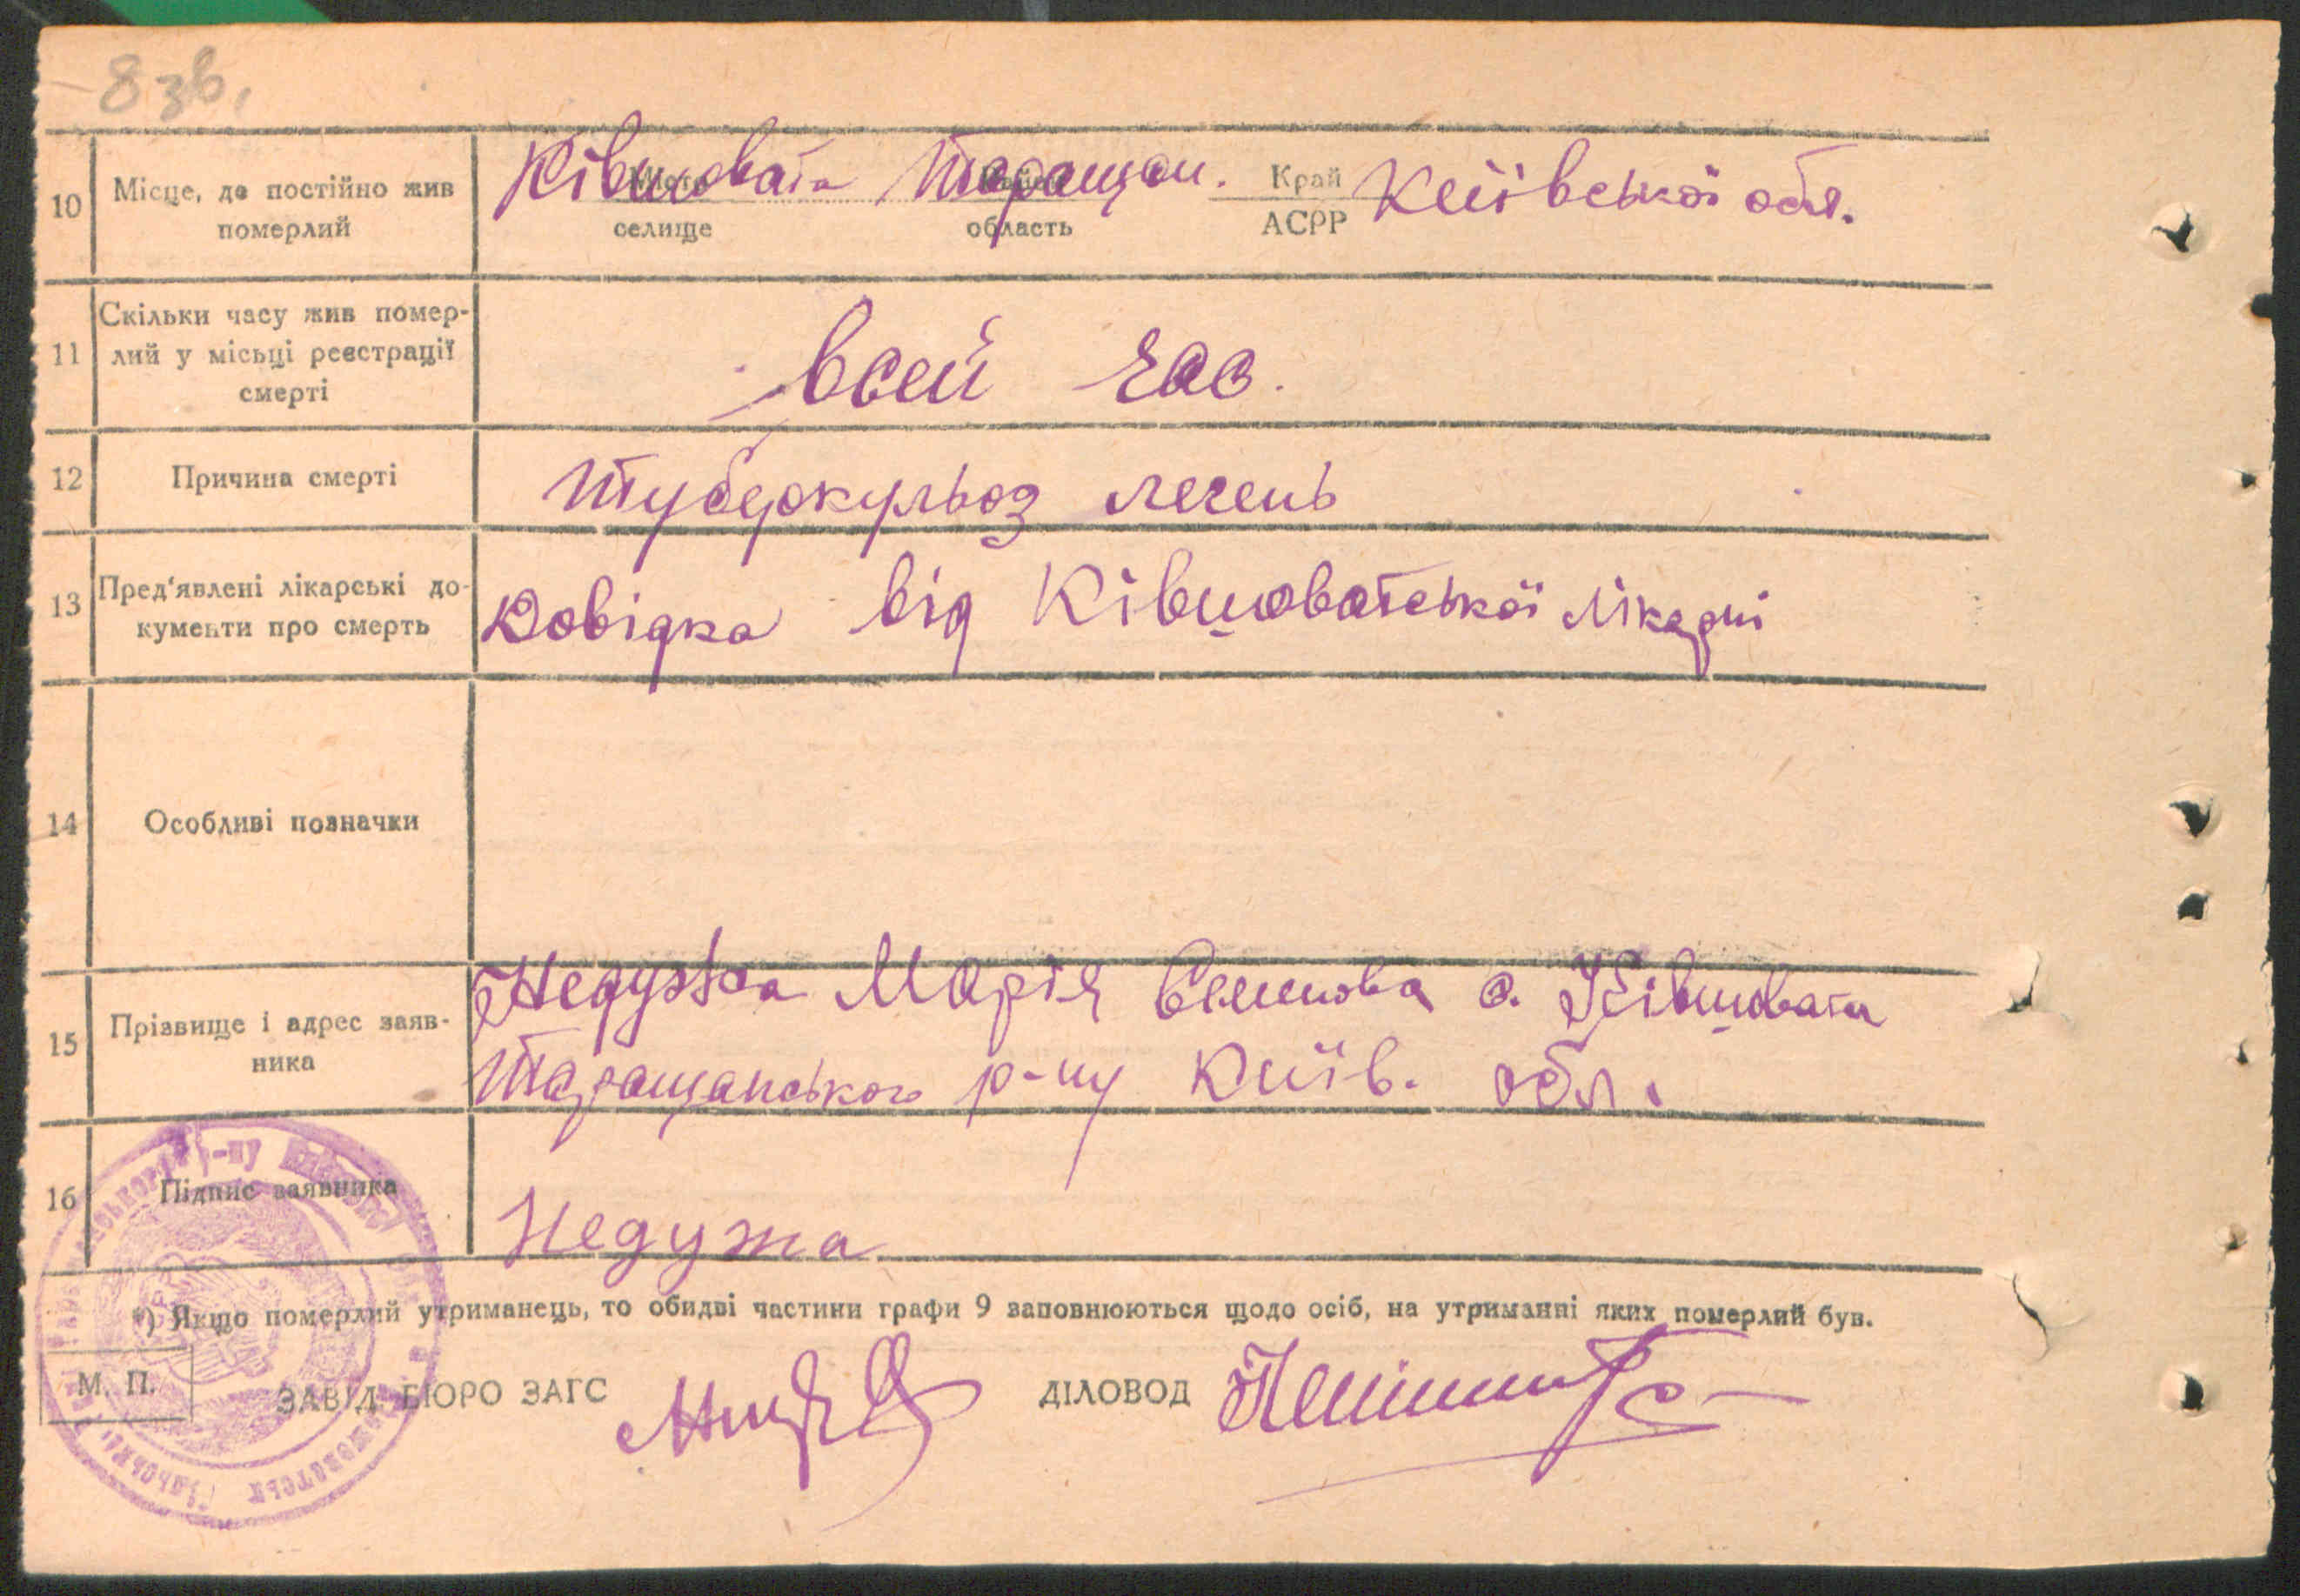 8 зв.
10 Місце, де постійно жив померлий
Ківшовата Таращан. Київської обл.
Місто селище область Край АСРР
11 Скільки часу жив помер-
лий у місьці реєстрації
смерті
Всей час.
12 Причина смерті
Туберкульоз легень
13 Пред'явлені лікарські до-
кументи про смерть
Довідка від Ківшоватської лікарні
14 Особливі позначки
15 Прізвище і адрес заяв-
ника
Недужа Марія с. Ківшовата
Таращанського р-ну Київ. обл.
16 Підпис заявника
Недужа
*) Якщо померлий утриманець, то обидві частини графи 9 заповнюються щодо осіб, на утриманні яких померлий був.
М. П.
ЗАВІД БЮРО ЗАГС
ДІЛОВОД